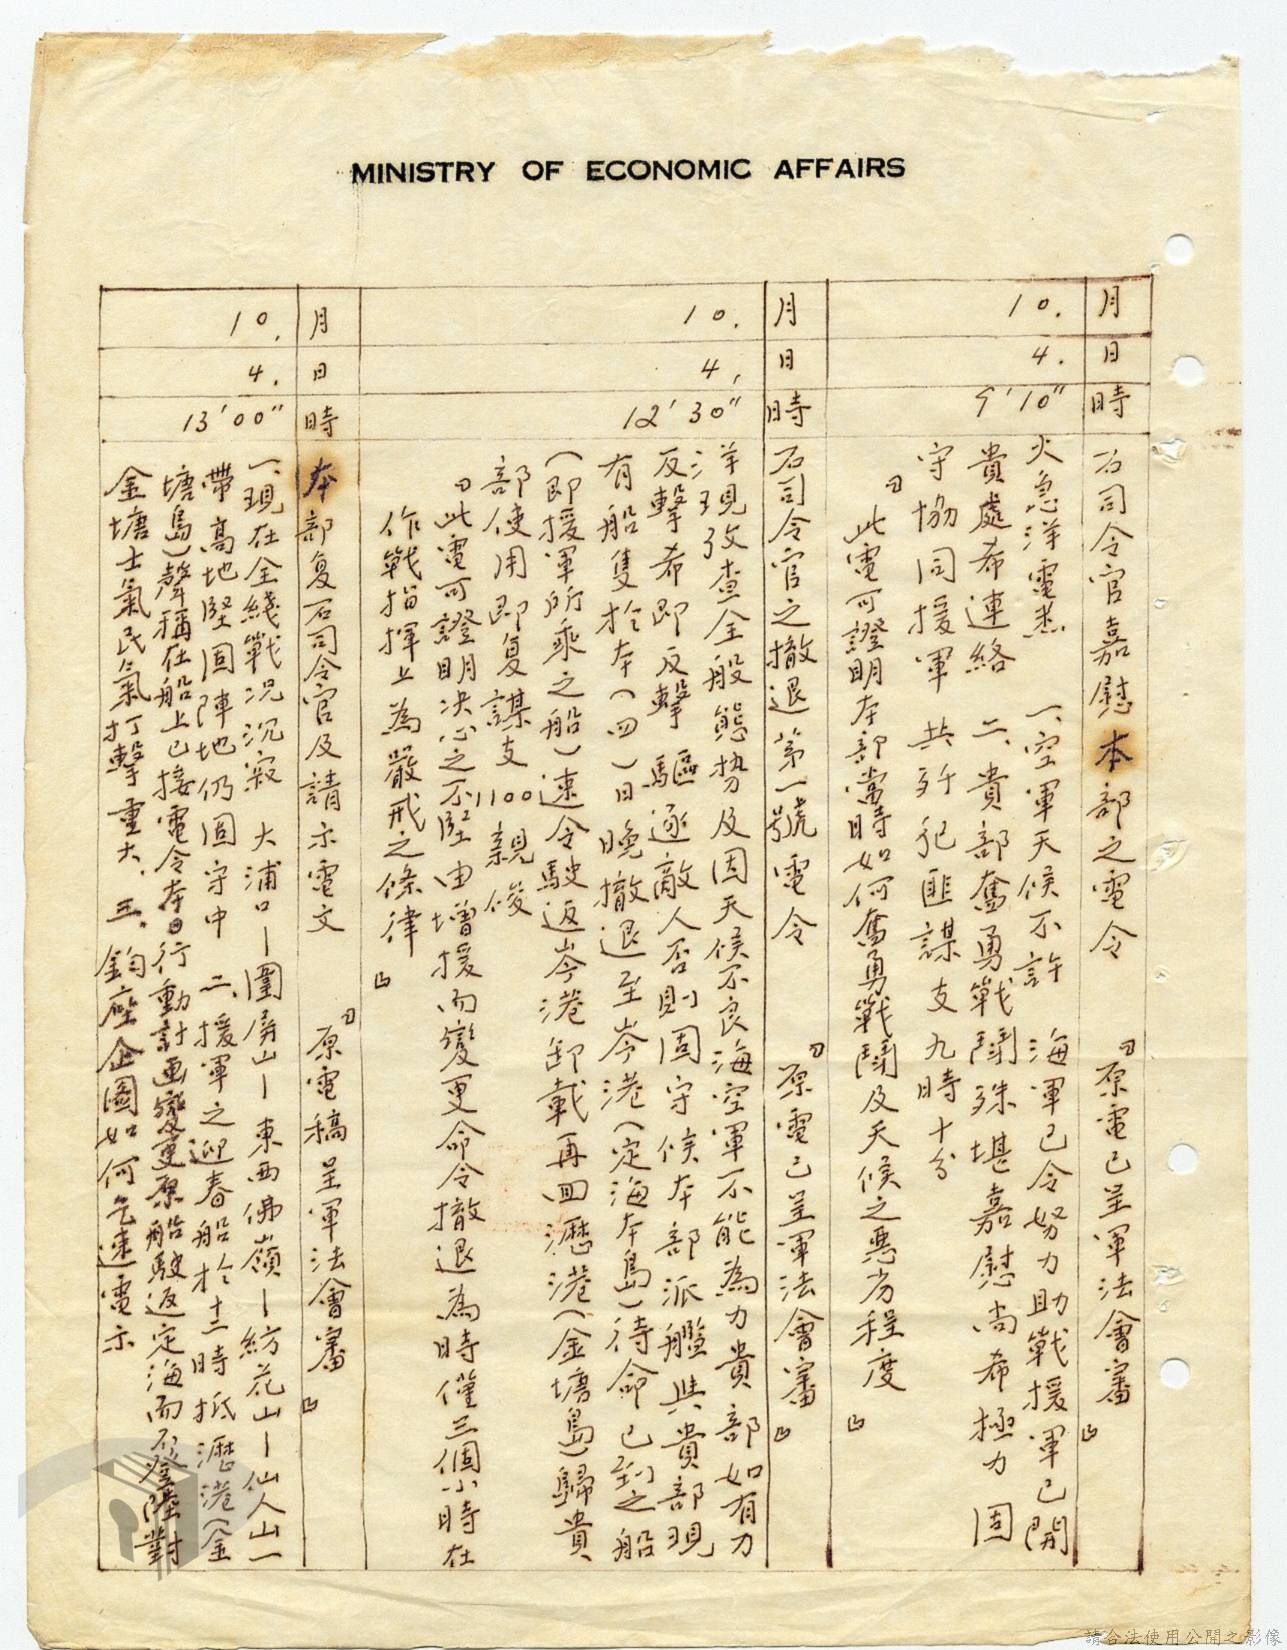 MINISTRY OF ECONOMIC AFFAIRS
月 日 時
石司令官嘉慰本部之電令 「原電已呈軍法會審」
10. 4. 9'10"
火急洋電悉 一、空軍天候不許 海軍已令努力助戰援軍已開
貴處希連絡 二、貴部奮勇戰鬪殊堪嘉慰尚希極力 固
守協同援軍 共歼犯匪謀支九時十分
「此電可證明本部當時如何奮勇戰鬪及天候之惡劣程度」
月 日 時
石司令官之撤退第一號電令 「原電已呈軍法會審」
10. 4. 12'30"
洋現攷查全般態势及因天候不良海空軍不能為力貴部如有力
反擊希即反擊 驅逐敵人否則固守 候本部派艦與貴部現
有船隻於本(四)日晚撤退至岑港(定海本島)待命已到之船
(即援軍所乘之船)速令駛返岑港卸載再回瀝港(金塘島)歸貴
部使用即复謀支1100親俊
「此電可證明决心之不堅由增援而變更命令撤退為時僅三個小時在
作戰指揮上為嚴戒之條律」
月 日 時
本部复石司令官及請示電文 「原電稿呈軍法會審」
10. 4. 13'00"
一、現在全綫戰况沉寂 大浦口—圍屏山—東西佛嶺—紡花山—仙人山一
帶高地堅固陣地仍固守中 二、援軍之迎春船於十二時抵瀝港(金
塘島)聲稱在船上已接電令本日行動計画變更原船駛返定海而不登陸對
金塘士氣民氣打擊重大. 三. 鈞座企圖如何乞速電示
請合法使用公開之影像